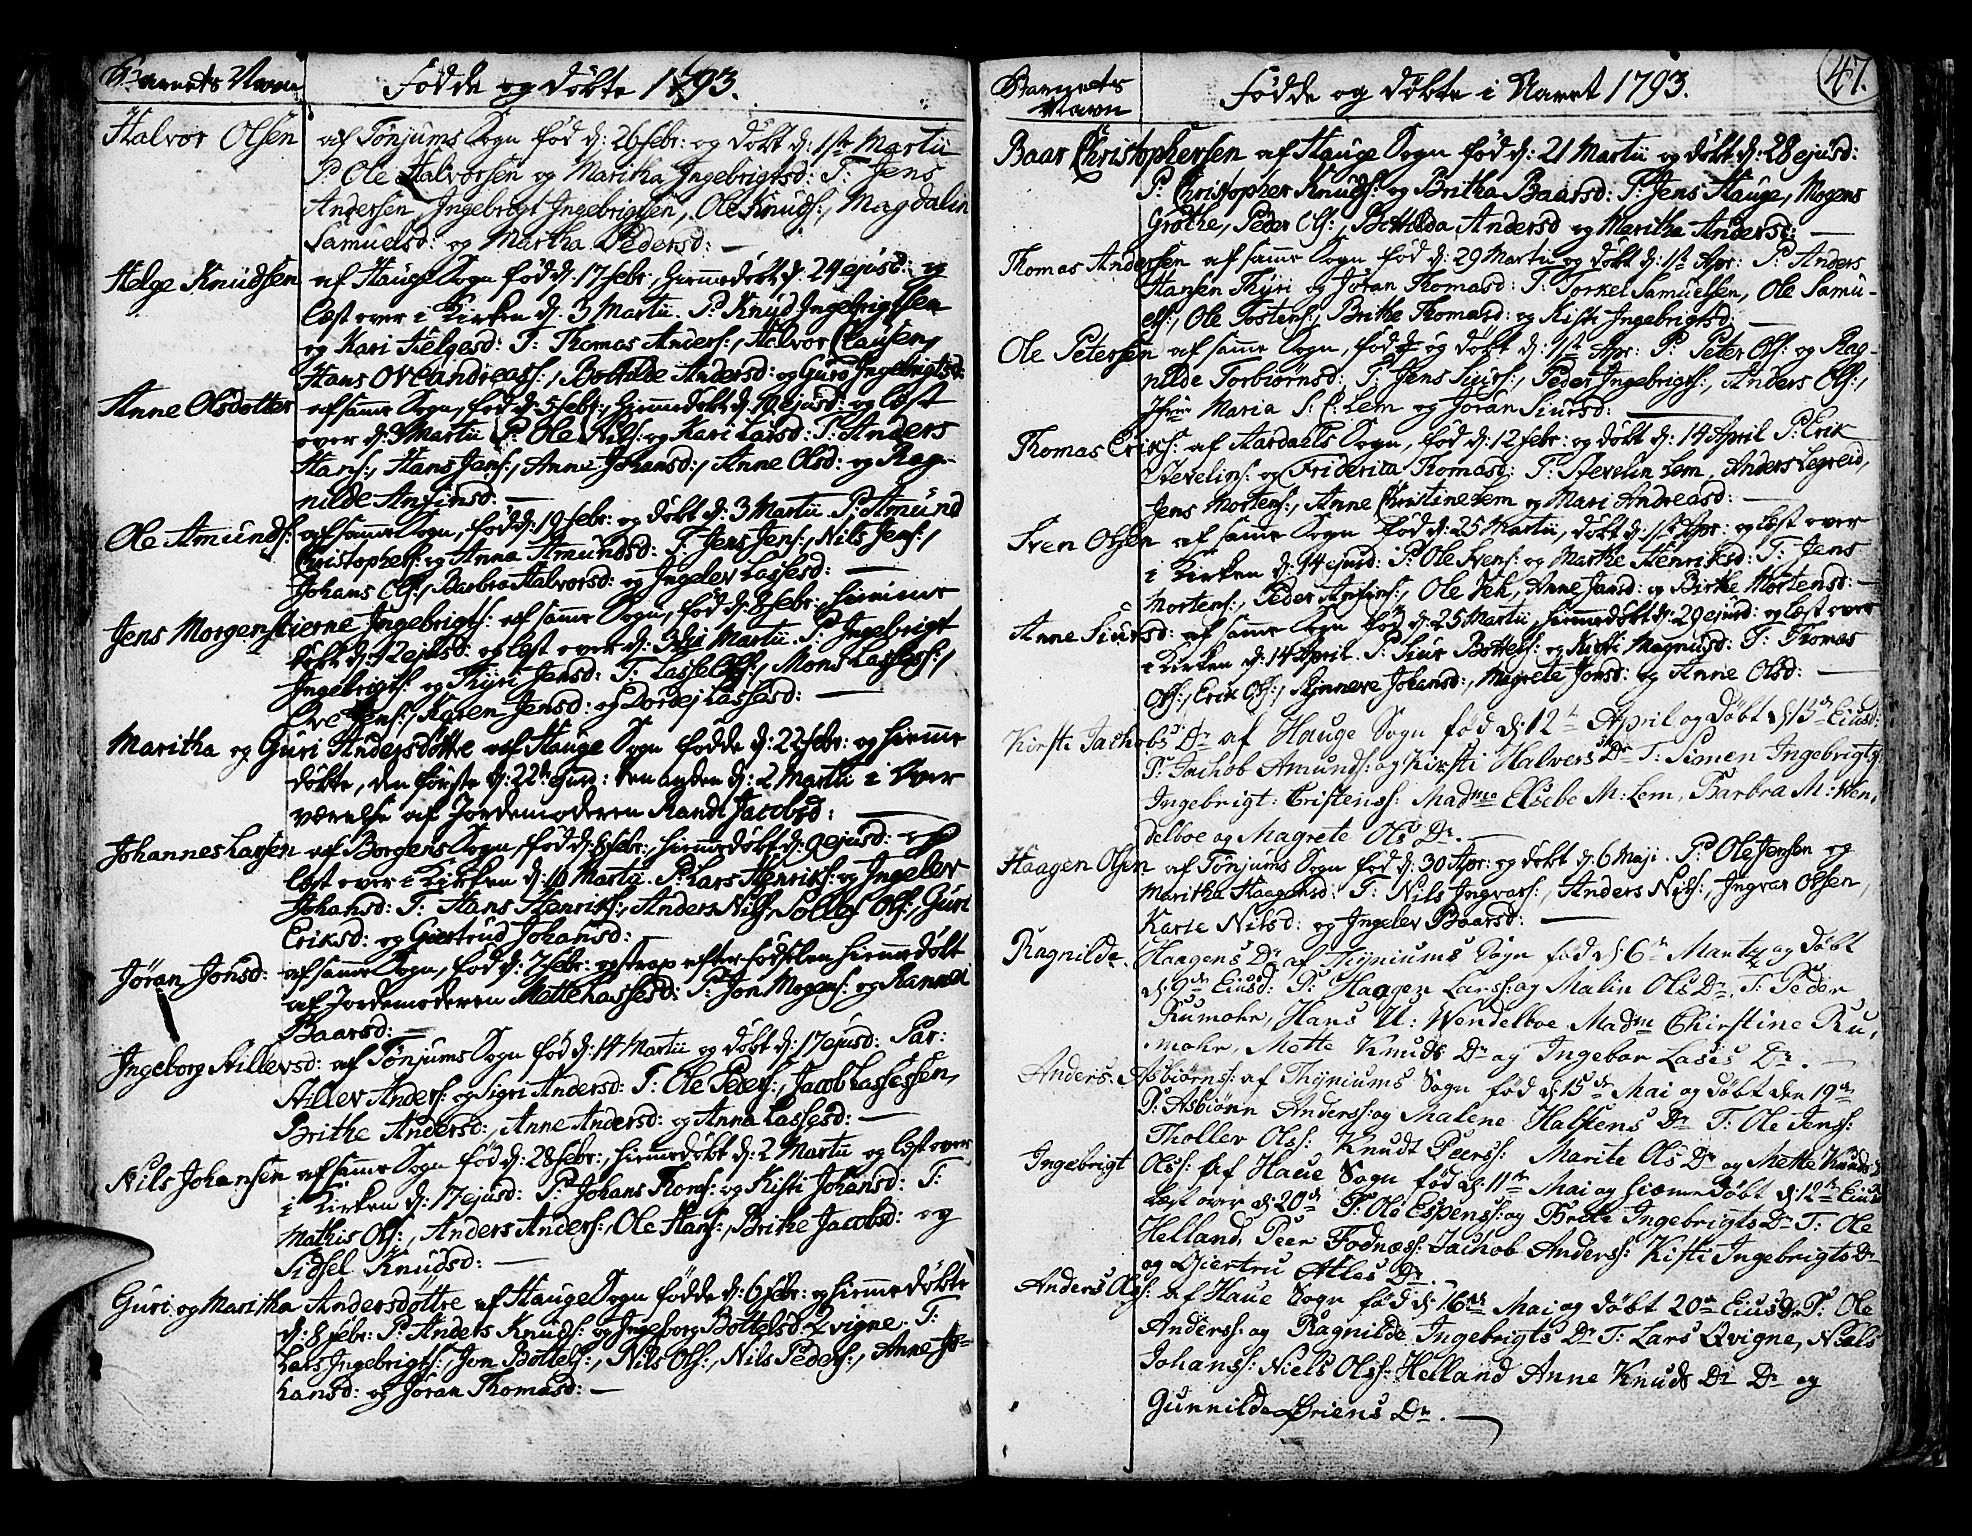 Barnets Navn
Fødde og døbte 1793.
Halvor Olsen af Tønjums Sogn fød d: 26 febr: og døbt d: 1ste Martii
P. Ole Halvorsen og Maritha Ingebrigtsd: T: Jens
Andersen, Ingebrigt Ingebrigtsen, Ole Knuds:, Magdalin
Samuelsd: og Martha Pedersd: —
Helge Knudsen af Hauge Sogn fød d: 17 febr, hiemmedøbt d: 24 ejusd: og
læst over i Kirken d: 3 Martii. P: Knud Ingebrigtsen
og Kari Helgesd: T: Thomas Anders:, Halvor Clausen,
Hans Ove Andreas:, Bothilde Andersd: og Guro Ingebrigtsd:
Anne Olsdotter af samme Sogn, fød d: 5 febr:, hiemmedøbt d: 10 ejusd: og læst
over d: 3 Martii P: Ole Nils: og Kari Larsd: T: Anders
Hans:, Hans Jens:, Anne Johansd:, Anne Olsd: og Rag-
nilde Anfinsd. —
Ole Amunds: af samme Sogn, fød d: 19 febr: og døbt d: 3 Martii P: Amund
Christophers: og Anna Amundsd: T: Jens Jens:, Nils Jens:,
Johans Ols:, Barbra Halvorsd: og Ingelev Lassesd: —
Jens Morgenstierne Ingebrigts: af samme Sogn, fød d: 8 febr, hiemme
døbt d: 12 ejusd: og læst over d: 3die Martii. P: Ingebrigt
Ingebrigts: og Thyri Jensd: T: Lasse Ols:, Mons Lasses:,
Ove Jens:, Karen Jensd: og Dordej Lassesd: —
Maritha og Guri Andersdøttre af Hauge Sogn fødde d: 22 febr: og hiemme
døbte, den første d: 22de ejusd: den anden d: 2 Martii i Over
værelse af Jordemoderen Randi Jacobsd: —
Johannes Larsen af Borgens Sogn, fød d: 8 febr:, hiemmedøbt d: 9 ejusd: og
læst over i Kirken d: 10 Martii. P: Lars Henriks: og Ingelev
Johansd: T: Hans Henriks:, Anders Nils:, Sollef Ols:, Guri
Eriksd: og Giertrud Johansd: —
Jøran Jonsd: af samme Sogn, fød d: 7 febr: og strax efter fødselen hiemmedøbt
af Jordemoderen Mette Lassesd: P: Jon Mogens: og Rannei
Baarsd: —
Ingeborg Hillevsd: af Tønjums Sogn fød d: 14 Martii og døbt d: 17 ejusd: Par:
Hillev Anders: og Sigri Andersd: T: Ole Peders:, Jacob Lassessen,
Brithe Andersd:, Anne Andersd: og Anna Lassesd: —
Nils Johansen af samme Sogn fød d: 28 febr:, hiemmedøbt d: 2 Martii og læst over
i Kirken d: 17 ejusd: P: Johans Thoms: og Kisti Johansd: T:
Mathis Ols:, Anders Anders:, Ole Hans:, Brithe Jacobsd: og
Sidsel Knudsd: —
Guri og Maritha Andersdøttre af Hauge Sogn fødde d: 6 febr: og hiemmedøbte
d: 8 febr: P: Anders Knuds: og Ingeborg Bottelsd: Qvigne T:
Lars Ingebrigts:, Jon Bottels:, Nils Ols:, Nils Peders:, Anne Jo-
hansd: og Jøran Thomasd: —
47.
Barnets
Navn
Fødde og døbte i Aaret 1793.
Baar Christophersen af Hauge Sogn fød d: 21 Martii og døbt d: 28 ejusd:
P: Christopher Knuds: og Britha Baarsd: T: Jens Hauge, Mogens
Grøthe, Peder Ols:, Bothilda Andersd og Maritha Andersd: —
Thomas Andersen af samme Sogn fød d: 29 Martii og døbt d: 1st Apr: P: Anders
Hansen Thyri og Jøran Thomasd: T: Torkel Samuelsen, Ole Samu-
els:, Ole Tostens:, Brithe Thomasd: og Kisti Ingebrigtsd: —
Ole Petersen af samme Sogn, fød og døbt d: 1st Apr: P: Peter Ols: og Rag-
nilde Torbiørnsd: T: Jens Siurs:, Peder Ingebrigts:, Anders Ols:,
Jfrue Maria S: C: Lem og Jøran Siursd: —
Thomas Eriks: af Aardals Sogn, fød d: 12 febr: og døbt d: 14 April P: Erik
Stevelins: og Friderica Thomasd: T: Stevelin Lem, Anders Legreid,
Jens Mortens:, Anne Christine Lem og Mari Andreasd: —
Sven Olsen af samme Sogn fød d: 25 Martii, døbt d: 1st Apr: og læst over
i Kirken d: 14 ejusd: P: Ole Svens: og Marthe Henriksd: T: Jens
Mortens:, Peder Anfins:, Ole Vek, Anne Jansd: og Birthe Mortensd: —
Anne Siursd: af samme Sogn fød d: 25 Martii, hiemmedøbt d: 29 ejusd: og læst over
i Kirken d: 14 April. P: Siur Bottels: og Kirsti Magnusd: T: Thomas
Ols:, Erik Ols:, Synneve Johansd:, Magrete Jonsd: og Anne Olsd: —
Kirsti Jachobs Dr af Hauge Sogn fød d: 12te April og døbt d: 15de Eiusd:
P: Jachob Amunds: og Kirsti Halvers Dr T: Simen Ingebrigts:
Ingebrigt: Cristens: Madme Elsebe M: Lem, Barbra M: Wen,
delboe og Magrete Ols Dr. —
Haagen Olsen af Tønjums Sogn fød d: 30 Apr: og døbt d: 6 Maji. P: Ole Jensen og
Maritha Haagensd: T: Nils Ingvars:, Anders Nils:, Ingvar Olsen,
Karie Nilsd: og Ingelev Baarsd: —
Ragnilde Haagens Dr af Thyniums Sogn fød d: 6te Marty og døbt
d: 9de Eiusd: P: Haagen Lars: og Malin Ols Dr. T: Peder
Rumohr, Hans U: Wendelboe Madme Chirstine Ru,
mohr, Mette Knuds Dr og Ingebor Lases Dr.
Anders Asbiørns: af Thyniums Sogn fød d: 15de Mai og døbt den 19de
P: Asbiørn Anderss: og Malene Halstens Dr T: Ole Jens:
Thollev Olss: Knudt Peerss: Marite Ols Dr og Mette Knuds D
Ingebrigt Olss: af Haue Sogn fød d: 11te Mai og hiemedøbt d: 12te Eiusd
læst over d: 20de P: Ole Espens: og Brite Ingebrigts Dr T: Ole
Helland, Peer Fodnæss: Jachob Anderss: Kisti Ingebrigts Dr
og Giertru Atles Dr.
Anders Ols: af Haue Sogn fød d: 16de Mai og døbt 20de Eiusd P: Ole
Anderss: og Ragnilde Ingebrigts Dr T: Lars Qvigne, Niels
Johanss: Niels Olss: Helland Anne Knuds Dr Dr og
Gunnilde Briens Dr. —